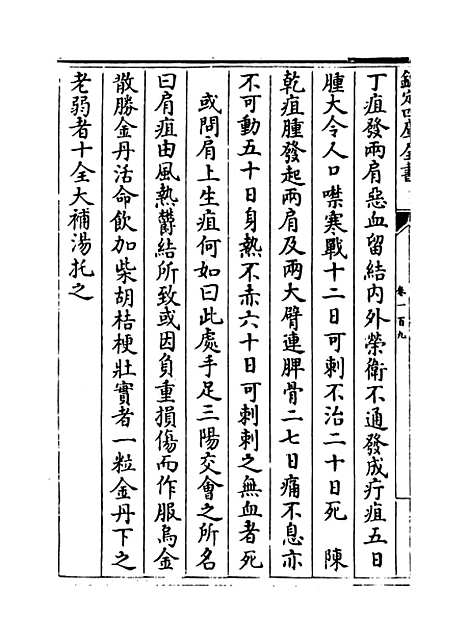 欽定四庫全書
卷一百九
丁疽發兩肩惡血留結內外榮衛不通發成疔疽五日
腫大令人口噤寒戰十二日可刺不治二十日死　陳
乾疽腫發起兩肩及兩大臂連胛骨二七日痛不息亦
不可動五十日身熱不赤六十日可刺刺之無血者死
或問肩上生疽何如曰此處手足三陽交會之所名
曰肩疽由風熱鬱結所致或因負重損傷而作服烏金
散勝金丹活命飲加柴胡桔梗壯實者一粒金丹下之
老弱者十全大補湯托之